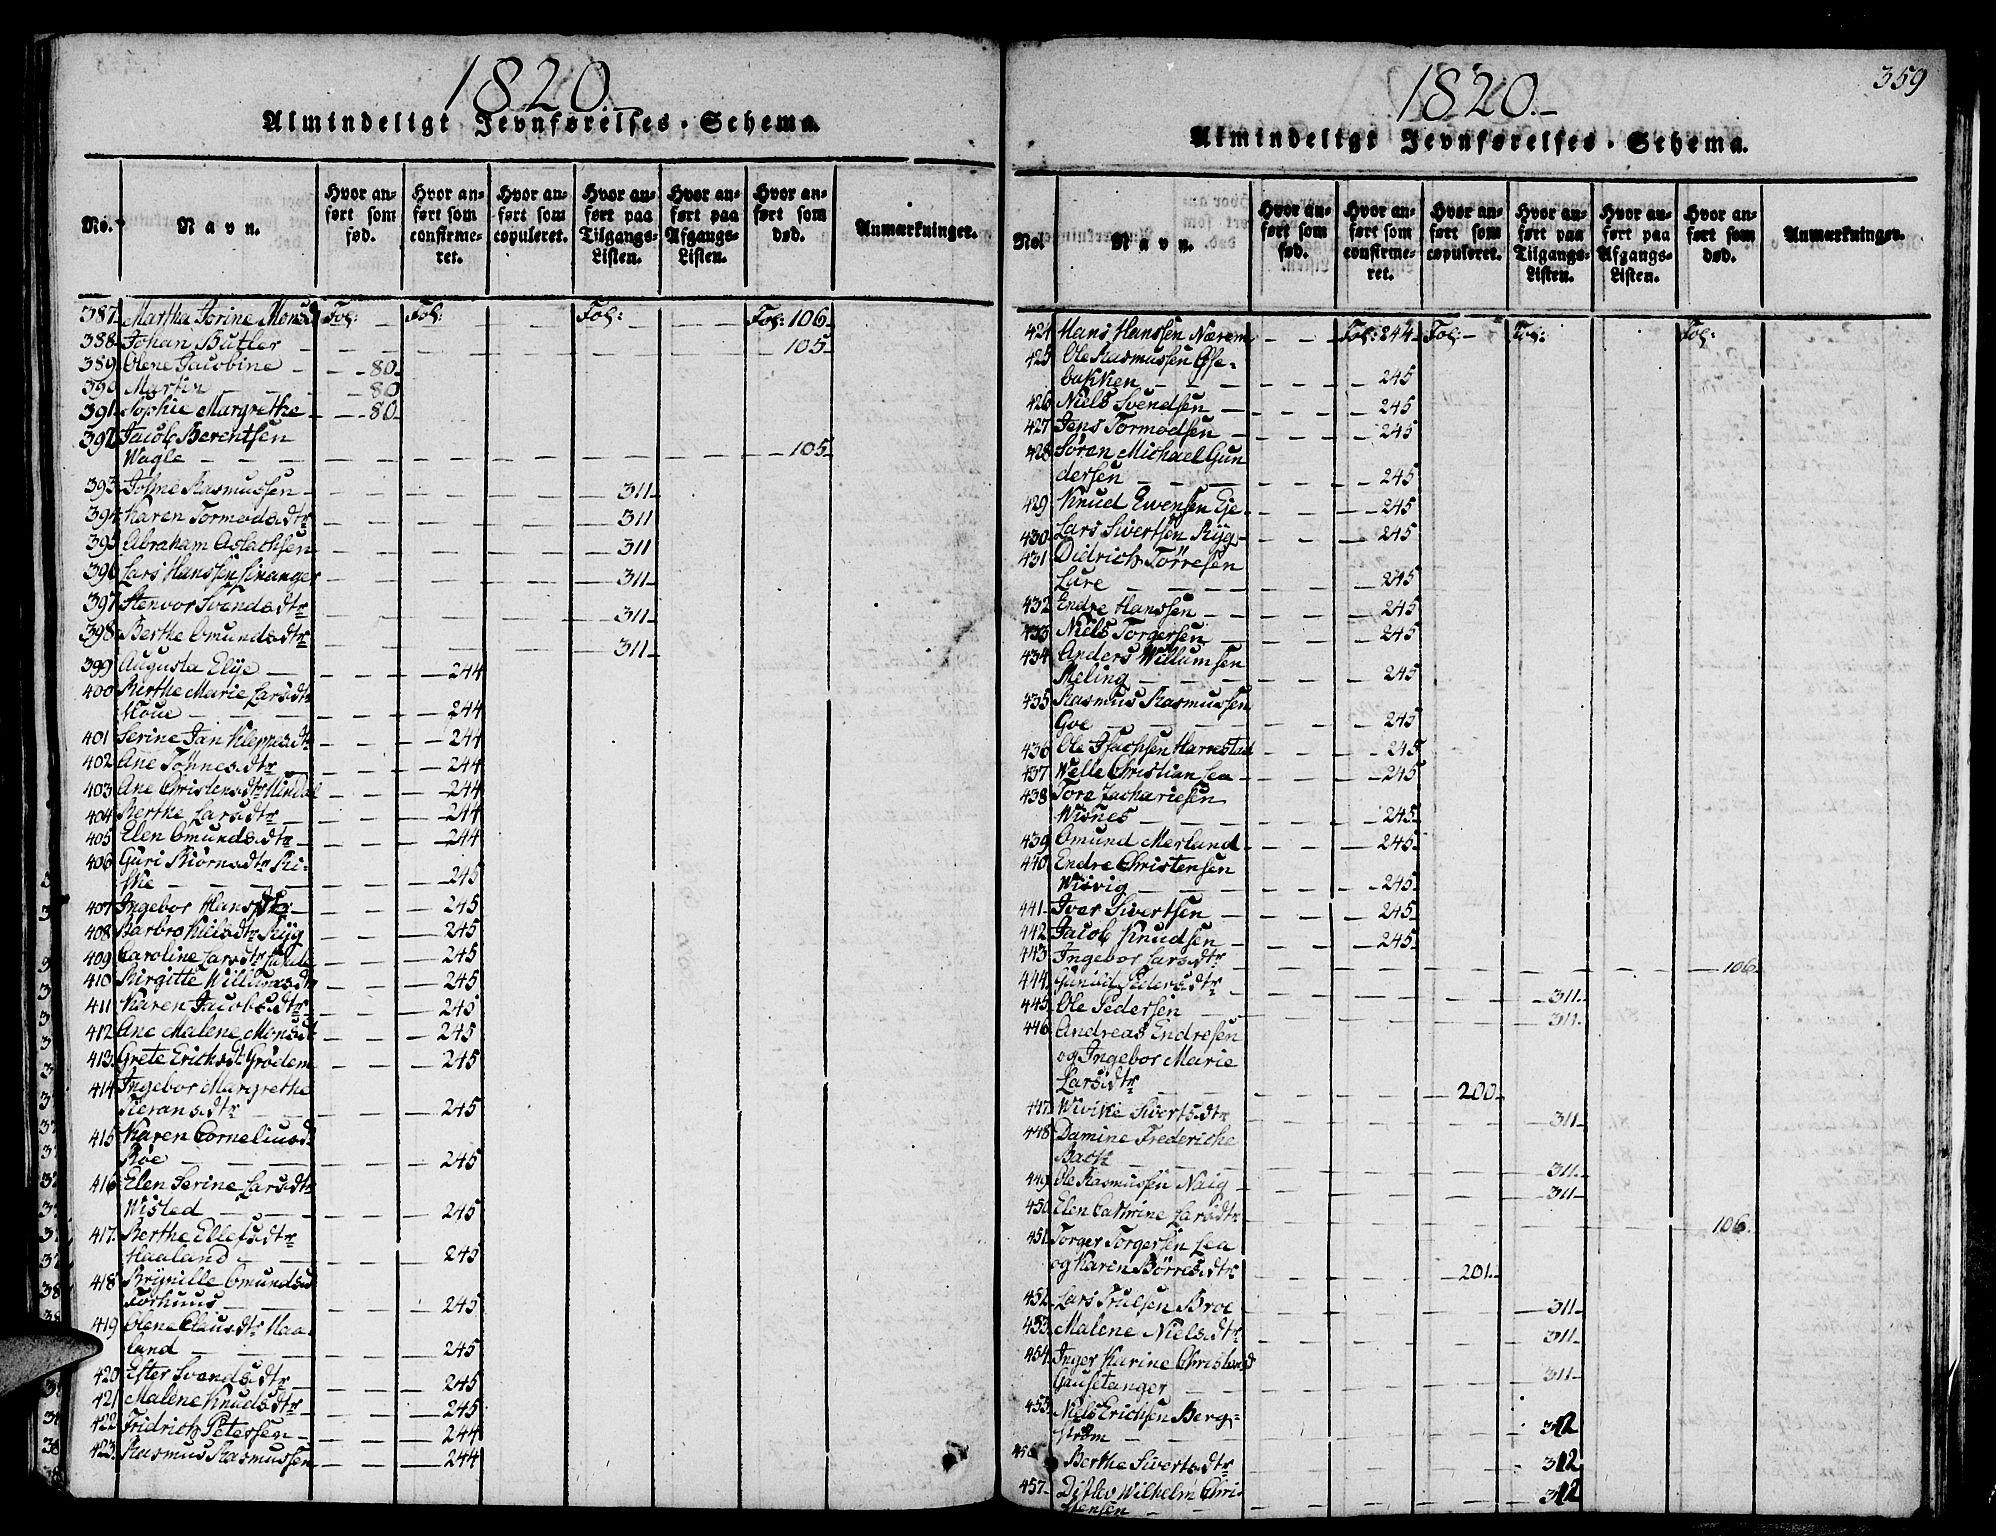 1820.
Almindeligt Jevnførelses-Schema.
No. Navn. Hvor anført som fød. Hvor anført som confirmeret. Hvor anført som copuleret. Hvor anført paa Tilgangs-Listen. Hvor anført paa Afgangs-Listen. Hvor anført som død. Anmærkninger.
387 Martha Sorine Monsd Fol: Fol: Fol: Fol: 106
388 Johan Butler 105
389 Olene Jacobine 80
390 Martin 80
391 Sophie Margrethe 80
392 Jacob Berentsen
Wagle 105
393 Tosne Rasmussen 311
394 Karen Tormodsdtr 311
395 Abraham Aslachsen 311
396 Lars Hanssen 311
397 Stenvor Svendsdtr 311
398 Berthe Omundsdtr 311
399 Augusta Elye 244
400 Berthe Marie Larsdtr
Houe 244
401 Serine Jan Kleppesdtr 244
402 Ane Tønnesdtr 244
403 Ane Christensdtr 244
404 Berthe Larsdtr 244
405 Elen Omundsdtr 244
406 Guri Biørnsdtr Ri-
ske 245
407 Ingebor Hansdtr 245
408 Barbro Nilsdtr Ryg 245
409 Caroline Larsdtr 245
410 Birgitte Willumsdtr 245
411 Karen Jacobsdtr 245
412 Ane Malene Monsdt 245
413 Grete Ericksdt Grødem 245
414 Ingebor Margrethe
Sieransdtr 245
415 Karen Corneliusdt
Bøe 245
416 Elen Serine Larsdtr
Wisted 245
417 Berthe Ellefsdtr
Haaland 245
418 Brynille Omundsd
Torhuus 245
419 Olene Clausdtr Haa-
land 245
420 Ester Svendsdtr 245
421 Malene Knudsdtr 245
422 Fridrich Petersen 244
423 Rasmus Rasmussen 244
359
1820.
Almindeligt Jevnførelses-Schema.
No. Navn. Hvor anført som fød. Hvor anført som confirmeret. Hvor anført som copuleret. Hvor anført paa Tilgangs-Listen. Hvor anført paa Afgangs-Listen. Hvor anført som død. Anmærkninger.
424 Hans Hanssen Nærem Fol: 244 Fol: Fol: Fol:
425 Ole Rasmussen Øse-
bakken 245
426 Niels Svendsen 245
427 Jens Tormodsen 245
428 Søren Michael Gun
dersen 245
429 Knud Evensen Eje 245
430 Lars Sivertsen Ryg 245
431 Didrich Torresen
Lure 245
432 Endre Hanssen 245
433 Niels Torgersen 245
434 Anders Willumsen
Meling 245
435 Rasmus Rasmussen
Goe 245
436 Ole Isachsen Harrestad 245
437 Welle Christian Lea 245
438 Tore Zachariesen
Wisnes 245
439 Omund Merland 245
440 Endre Christensen
Wisvig 245
441 Iver Sivertsen 245
442 Jacob Knudsen 245
443 Ingebor Larsdtr 106
444 Gunild Pedersdtr 311
445 Ole Pedersen 311
446 Andreas Endresen
og Ingebor Marie
Larsdtr 200
447 Wivike Sivertsdtr 311
448 Damine Frederiche
Bach 311
449 Ole Rasmussen Naig 311
450 Elen Cathrine Larsdtr 106
451 Torger Torgersen Lea
og Karen Børresdtr 201
452 Lars Trulsen Broe 311
453 Malene Nielsdtr 311
454 Inger Karine Christensd
Gausetanger 311
455 Niels Erichsen Berg-
strøm 312
456 Berthe Sivertsdtr 312
457 Ditlev Wilhelm Chri-
stensen 312